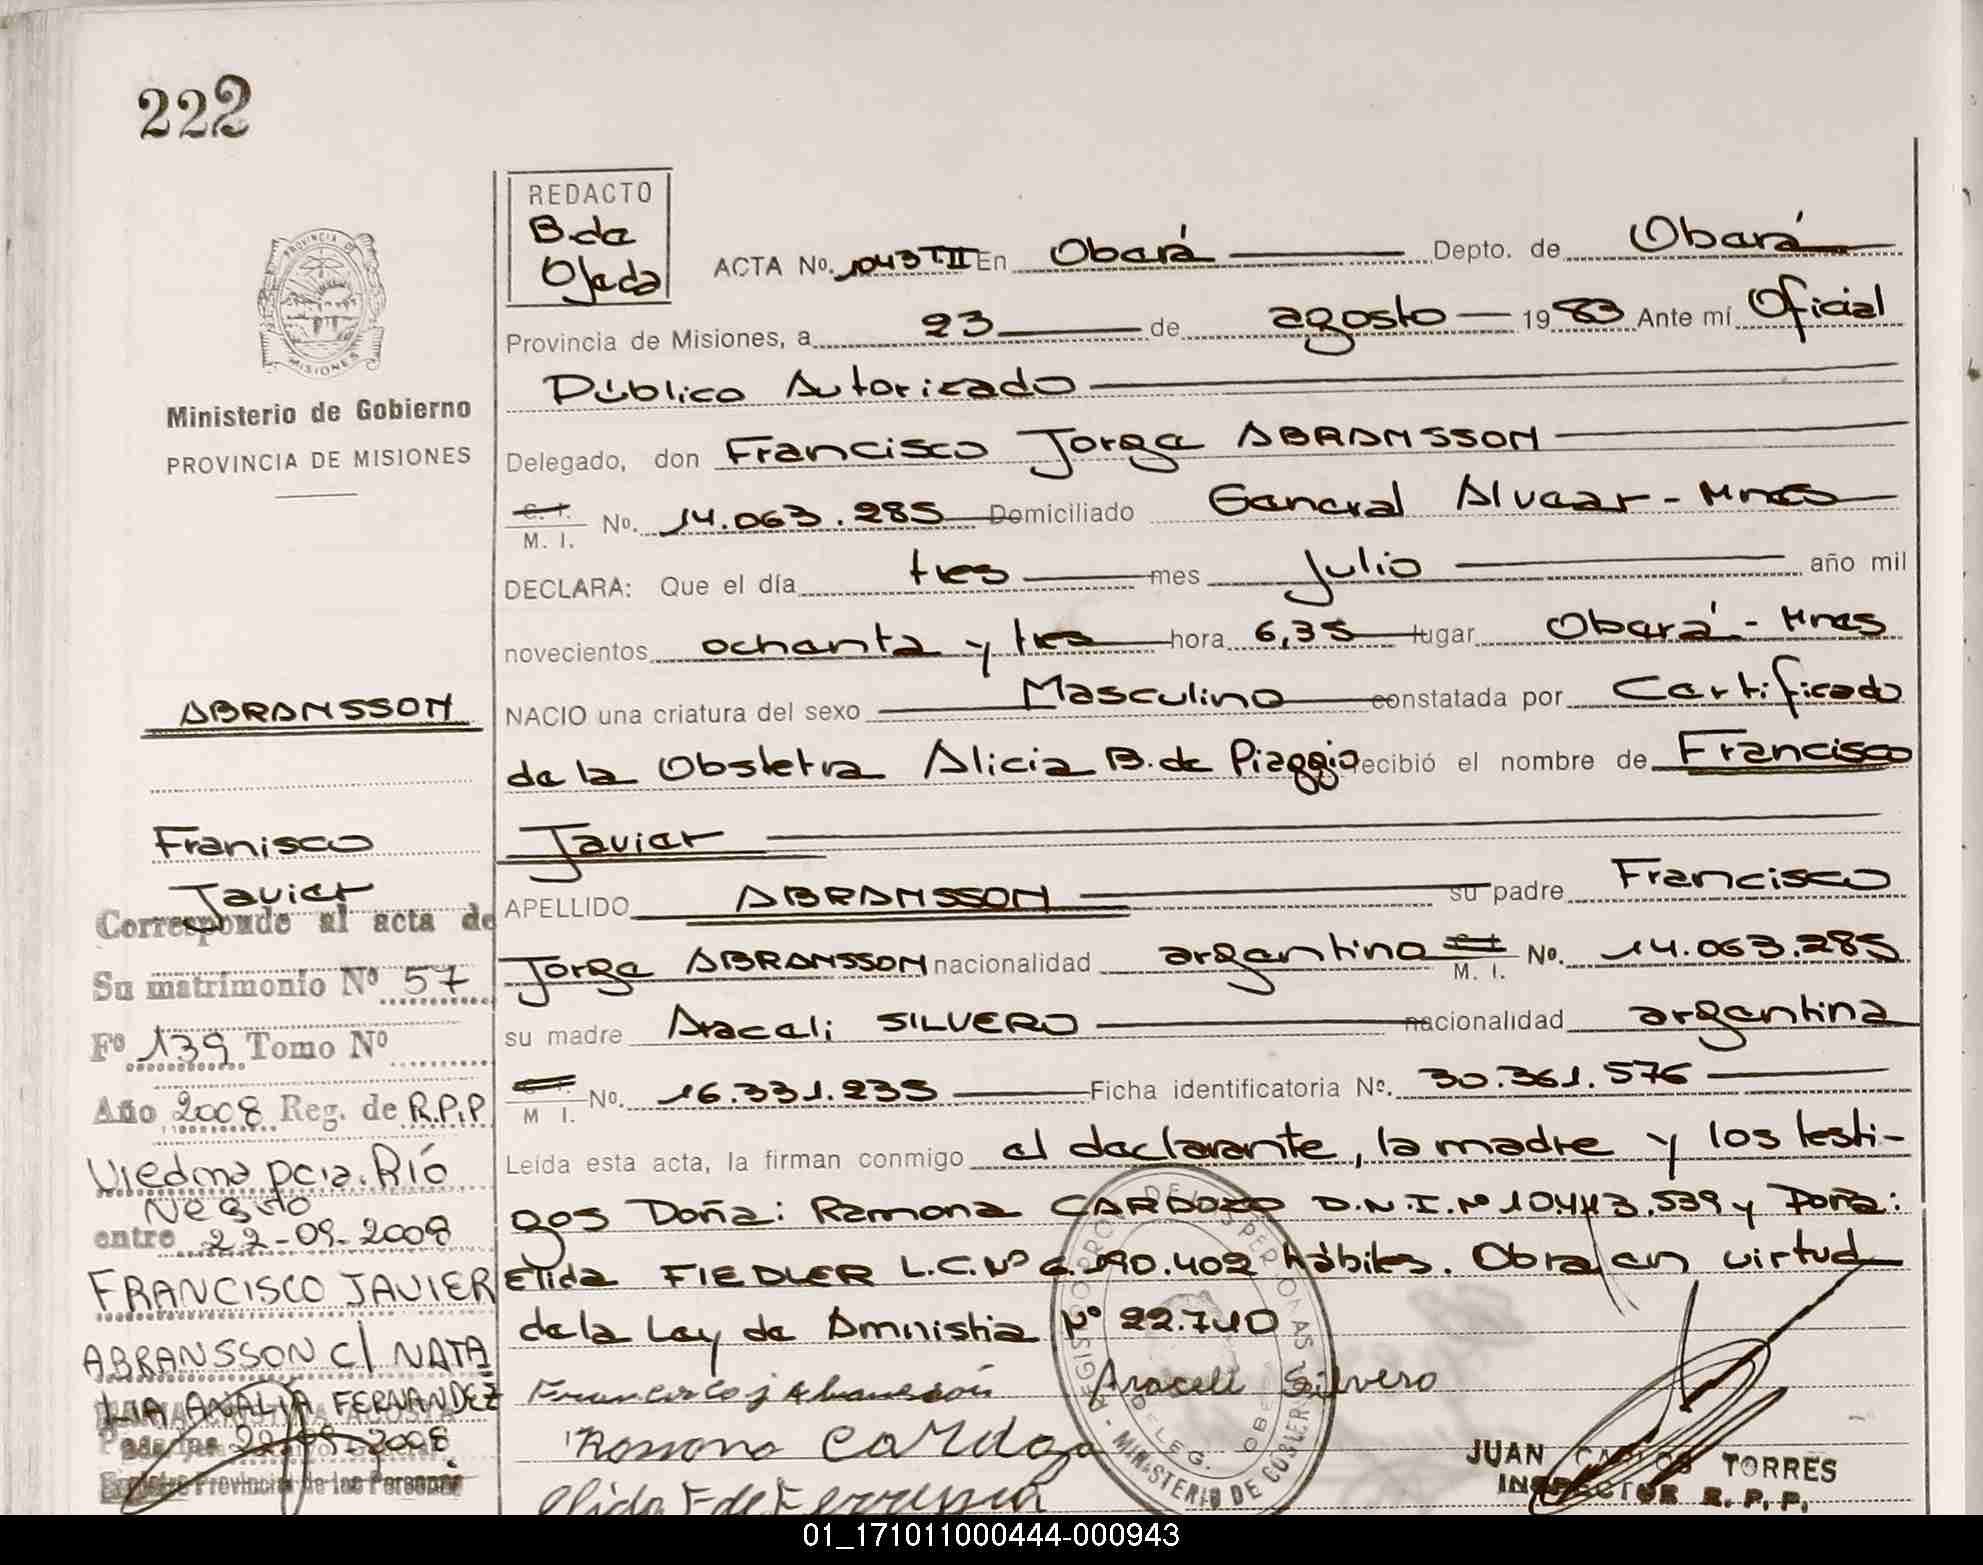 222
REDACTO
B. de
Ojeda
ACTA No. 1043 T.II En Oberá Depto. de Oberá
Provincia de Misiones, a 23 de agosto 1983 Ante mí Oficial
Público Autorizado
Delegado, don Francisco Jorge ABRANSSON
C. I.
M. I. No. 14.063.285 Domiciliado General Alvear - Mnes
DECLARA: Que el día tres mes Julio año mil
novecientos ochenta y tres hora 6,35 lugar Oberá - Mnes
NACIO una criatura del sexo Masculino constatada por Certificado
de la Obstetra Alicia B. de Piaggio recibió el nombre de Francisco
Javier
APELLIDO ABRANSSON su padre Francisco
Jorge ABRANSSON nacionalidad argentino M. I. No. 14.063.285
su madre Araceli SILVERO nacionalidad argentina
M I. No. 16.331.235 Ficha identificatoria No. 30.361.576
Leída esta acta, la firman conmigo el declarante, la madre y los testi-
gos Doña: Ramona CARDOZO D.N.I. Nº 10.443.539 y Doña:
Elida FIEDLER L.C. Nº 190.402 hábiles. Obra en virtud
de la Ley de Amnistia Nº 22.740
Francisco J Abransson Araceli Silvero
Ramona Cardozo
Elida F de
JUAN CARLOS TORRES
INSPECTOR R. P. P.
REGISTRO PROV. DE LAS PERSONAS - MINISTERIO DE GOBIER
DELEG. OBE
PROVINCIA DE
MISIONES
Ministerio de Gobierno
PROVINCIA DE MISIONES
ABRANSSON
Franisco
Javier
Corresponde al acta de
Su matrimonio Nº 57
Fº 139 Tomo Nº
Año 2008 Reg. de R.P.P
Viedma pcia. Río
Negro
entre 22-09-2008
FRANCISCO JAVIER
ABRANSSON c/ NATA
LIA ANALIA FERNANDEZ
Posadas 22 2008
Registro Provincial de las Personas
01_171011000444-000943